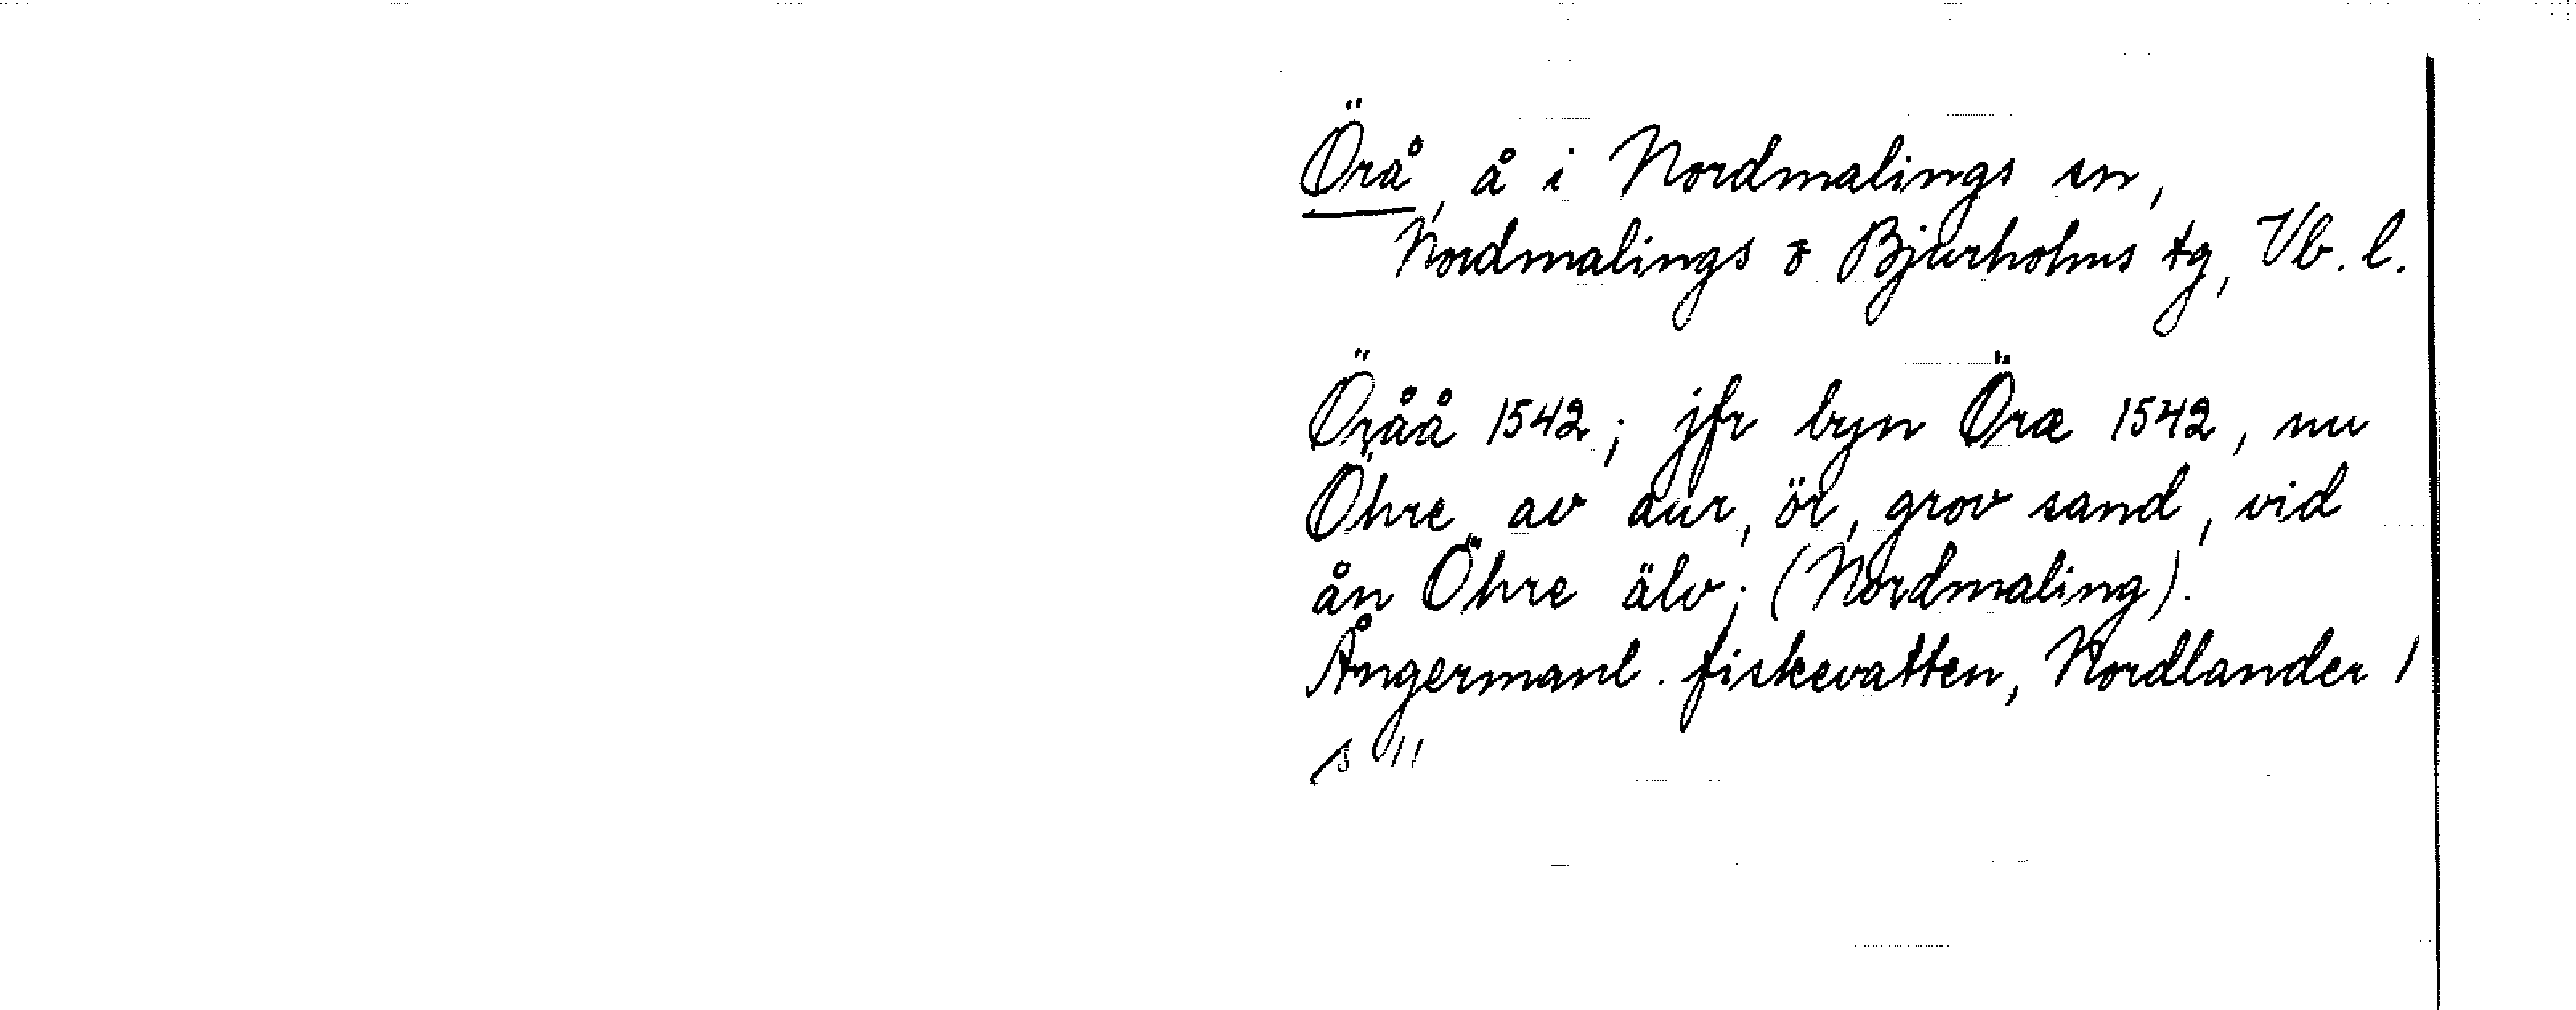 Örå, å i Nordmalings sn,
Nordmalings o Bjurholms tg, Vb. l.
Öråå 1542; jfr byn Öræ 1542, nu
Öhre av aur, ör, grov sand, vid
ån Öhre älv; (Nordmaling).
Ångermanl. fiskevatten, Nordlander 1
s 11